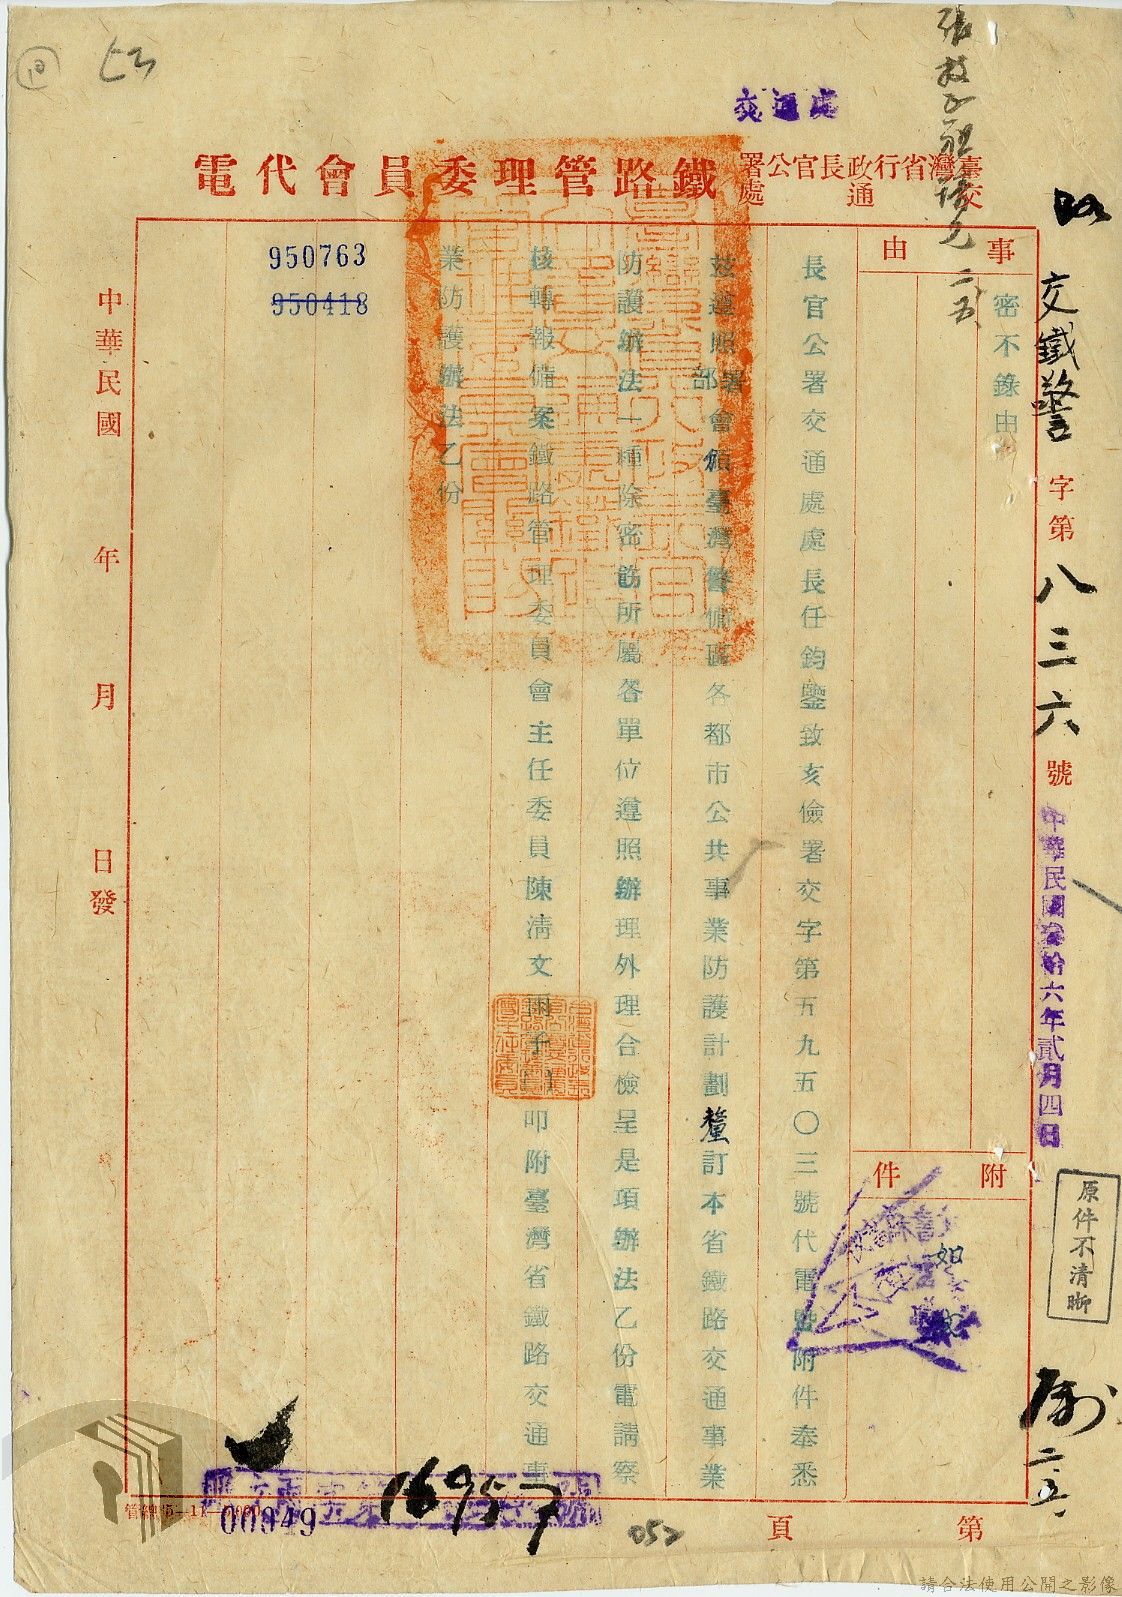 臺灣省行政長官公署交通處
鐵路管理委員會代電
交通處
交鐵警字第八三六號
中華民國叁拾六年貳月四日
事由
密不錄由
附件
如
原件不清晰
長官公署交通處處長任鈞鑒致亥儉署交字第五九五〇三號代電暨附件奉悉
茲遵照部署會頒臺灣警備區各都市公共事業防護計劃釐訂本省鐵路交通事業
防護辦法一種除密飭所屬各單位遵照辦理外理合檢呈是項辦法乙份電請察
核轉報備案鐵路管理委員會主任委員陳清文
叩附臺灣省鐵路交通事
業防護辦法乙份
950763
950418
中華民國 年 月 日發
第 頁
00949
16957
052
10
請合法使用公開之影像